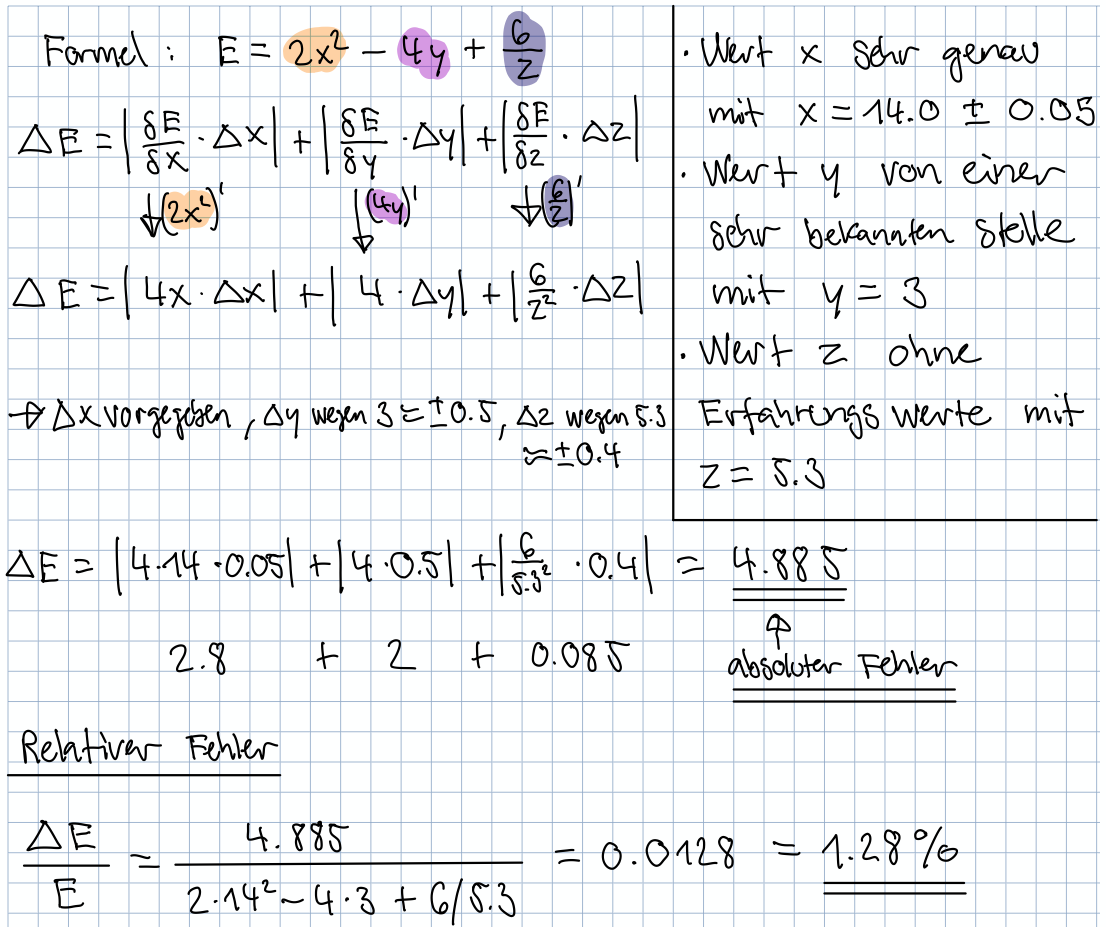 Formel : E = 2x² − 4y + 6/z
ΔE = |δE/δx · Δx| + |δE/δy · Δy| + |δE/δz · Δz|
↓(2x²)' ↓(4y)' ↓(6/z)'
ΔE = |4x · Δx| + |4 · Δy| + |6/z² · Δz|
→ Δx vorgegeben, Δy wegen 3 ≈ ±0.5, Δz wegen 5.3
≈ ±0.4
· Wert x sehr genau
mit x = 14.0 ± 0.05
· Wert y von einer
sehr bekannten Stelle
mit y = 3
· Wert z ohne
Erfahrungswerte mit
z = 5.3
ΔE = |4·14·0.05| + |4·0.5| + |6/5.3² · 0.4| = 4.885
2.8 + 2 + 0.085
↑
absoluter Fehler
Relativer Fehler
ΔE/E = 4.885/(2·14² − 4·3 + 6/5.3) = 0.0128 = 1.28%